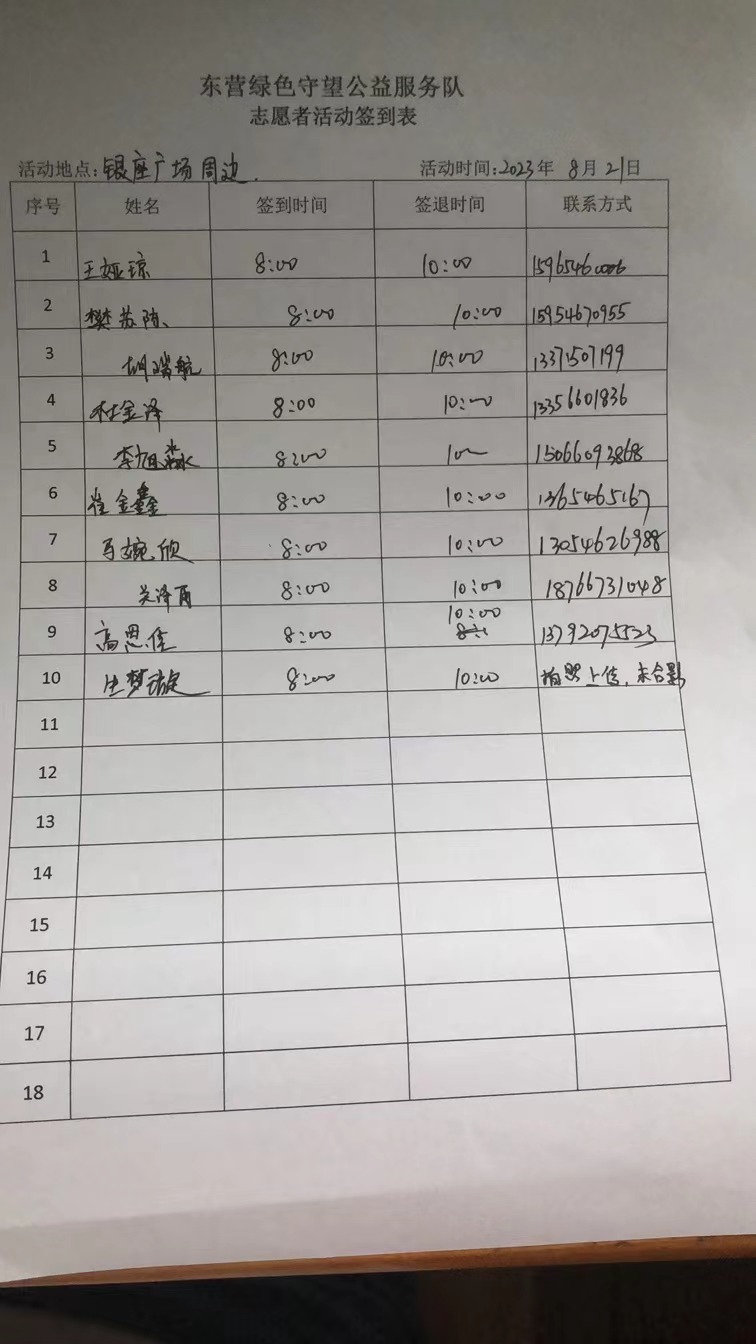 东营绿色守望公益服务队
志愿者活动签到表
活动地点:银座广场周边. 活动时间:2023年 8月21日
序号 姓名 签到时间 签退时间 联系方式
1 王娅琼 8:00 10:00 15965460006
2 樊苏 8:00 10:00 15954670955
3 胡瑞航 8:00 10:00 13371507199
4 杜金泽 8:00 10:00 13356601836
5 李旭淼 8:00 15066093868
6 崔金鑫 8:00 10:00 1365465167
7 马婉欣 8:00 10:00 13054626988
8 关泽雨 8:00 10:00 18766731048
9 高恩佳 8:00 10:00 13792075523
10 生梦 8:00 10:00 拍照上传,未合影
11
12
13
14
15
16
17
18